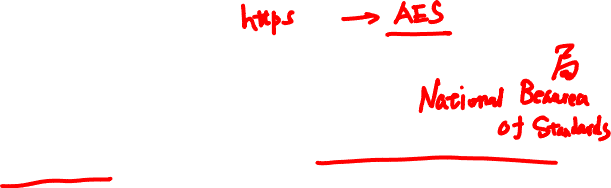 https → AES
局
National Beaurea
of Standards